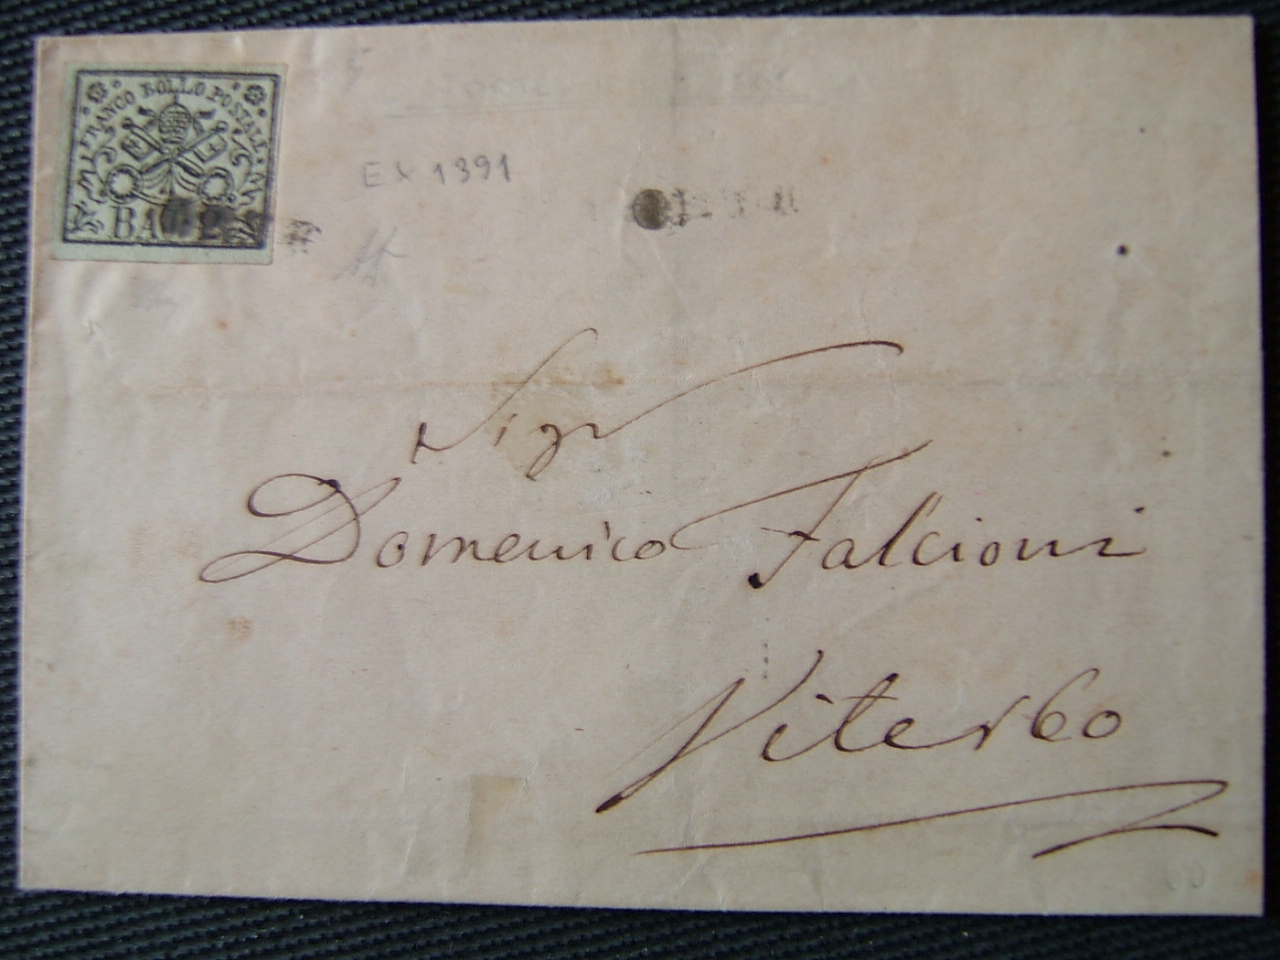 FRANCO BOLLO POSTALE
BAJ 2
EX 1391
Sigr
Domenico Falcioni
Viterbo